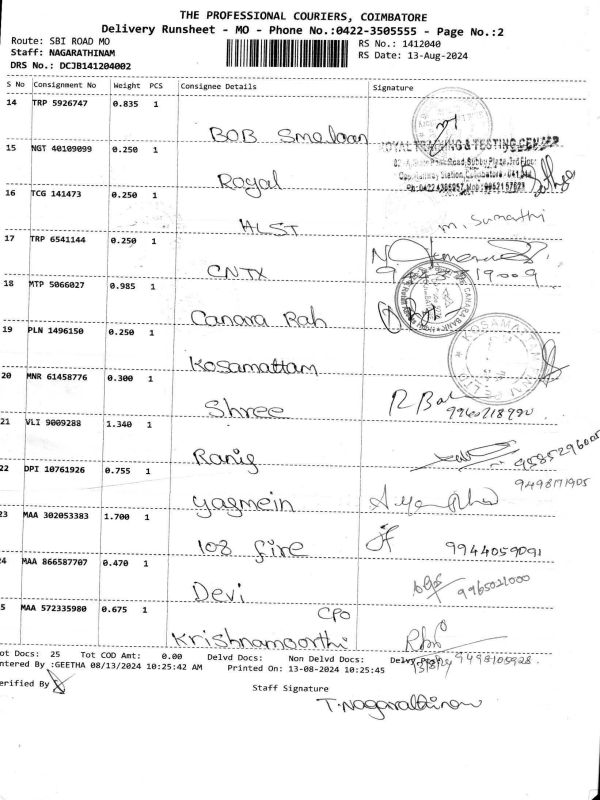 THE PROFESSIONAL COURIERS, COIMBATORE
Delivery Runsheet - MO - Phone No.:0422-3505555 - Page No.:2
Route: SBI ROAD MO RS No.: 1412040
Staff: NAGARATHINAM RS Date: 13-Aug-2024
DRS No.: DCJB141204002
S No Consignment No Weight PCS Consignee Details Signature
14 TRP 5926747 0.835 1
BOB Smelaan
15 NGT 40109099 0.250 1 ROYAL TRACING & TESTING CENTER
Royal
16 TCG 141473 0.250 1
HLST M. Sumathi
17 TRP 6541144 0.250 1
CNTX
18 MTP 5066027 0.985 1 CANARA BANK
Canara Rah
19 PLN 1496150 0.250 1 KOSAMATTAM
Kosamattam
20 MNR 61458776 0.300 1
Shree 9940218990
21 VLI 9009288 1.340 1
Ranig 9585296005
22 DPI 10761926 0.755 1 9498171905
yasmein
23 MAA 302053383 1.700 1
108 fire 9944059091
24 MAA 866587707 0.470 1
Devi 9965021000
25 MAA 572335980 0.675 1 CPO
Krishnamoorthi
Tot Docs: 25 Tot COD Amt: 0.00 Delvd Docs: Non Delvd Docs: 13/8/24 9498105928
Entered By :GEETHA 08/13/2024 10:25:42 AM Printed On: 13-08-2024 10:25:45
Verified By
Staff Signature
T. Nagarathinam